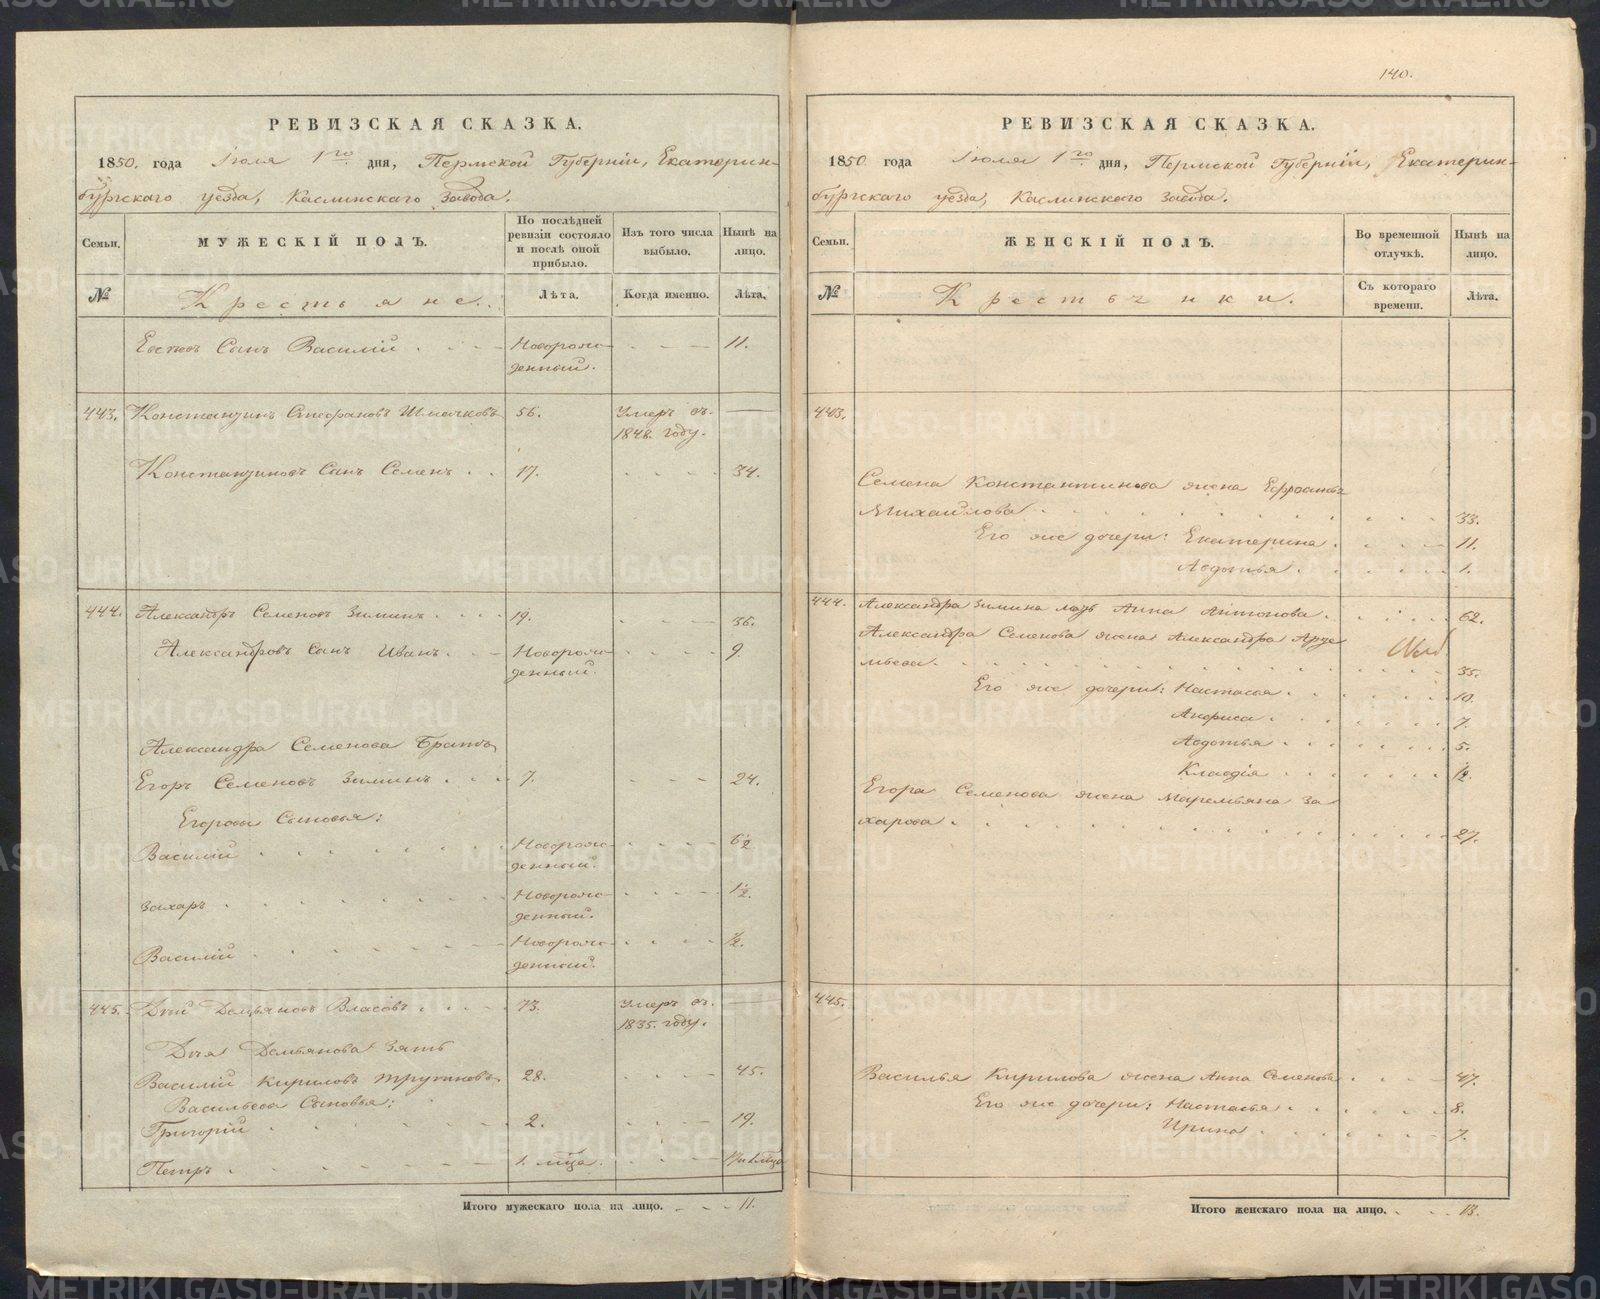 140.
РЕВИЗСКАЯ СКАЗКА.
1850. года Іюля 1го дня, Пермской Губерніи, Екатерин-
бургскаго уезда, Каслинскаго Завода.
Семьи.
МУЖЕСКІЙ ПОЛЪ.
По послѣдней ревизіи состояло и послѣ оной прибыло.
Изъ того числа выбыло.
Нынѣ на лицо.
№
Крестьяне.
Лѣта.
Когда именно.
Лѣта.
Сынъ Василій . . . Новорож- . . . 11.
денный.
443. Константинъ Стефановъ 56. Умеръ въ
1848. году.
Константиновъ Сынъ Семенъ . . 17. . . . 34.
444. Александръ Семеновъ Зиминъ . . . 19. . . . 36.
Александровъ Сынъ Иванъ . . . Новорож- . . . 9.
денный.
Александра Семенова Братъ
Егоръ Семеновъ Зиминъ . . . 7. . . . 24.
Егоровы Сыновья:
Василій . . . Новорож- . . . 6½
денный.
Захаръ . . . Новорож- . . . 1½.
денный.
Василій . . . Новорож- . . . ½.
денный.
445. Власовъ . . . 73. Умеръ въ
1835. году.
Зять
Василій Кириловъ 28. . . . 45.
Васильевы Сыновья:
Григорій . . . 2. . . . 19.
Петръ . . . 1. мѣс̃ца.
Итого мужескаго пола на лицо. . . . 11.
РЕВИЗСКАЯ СКАЗКА.
1850 года Іюля 1го дня, Пермской Губерніи, Екатерин-
бургскаго уезда, Каслинскаго Завода.
Семьи.
ЖЕНСКІЙ ПОЛЪ.
Во временной отлучкѣ.
Нынѣ на лицо.
№
Крестьянки.
Съ котораго времени.
Лѣта.
443.
Семена Константинова жена
Михайлова . . . 33.
Его же дочери: Екатерина . . . 11.
Авдотья . . . 1.
444. Александра Зимина мать Анна Антонова . . . 62.
Александра Семенова жена Александра Арте
мьева . . . 35.
Его же дочери: Настасья . . . 10.
Анфиса . . . 7.
Авдотья . . . 5.
Клавдія . . . ½.
Егора Семенова жена Маремьяна За
харова . . . 27.
445.
Василья Кирилова жена Анна Семенова . . . 47.
Его же дочери: Настасья . . . 8.
Ирина . . . 7.
Итого женскаго пола на лицо. . . . 13.
METRIKI.GASO-URAL.RU